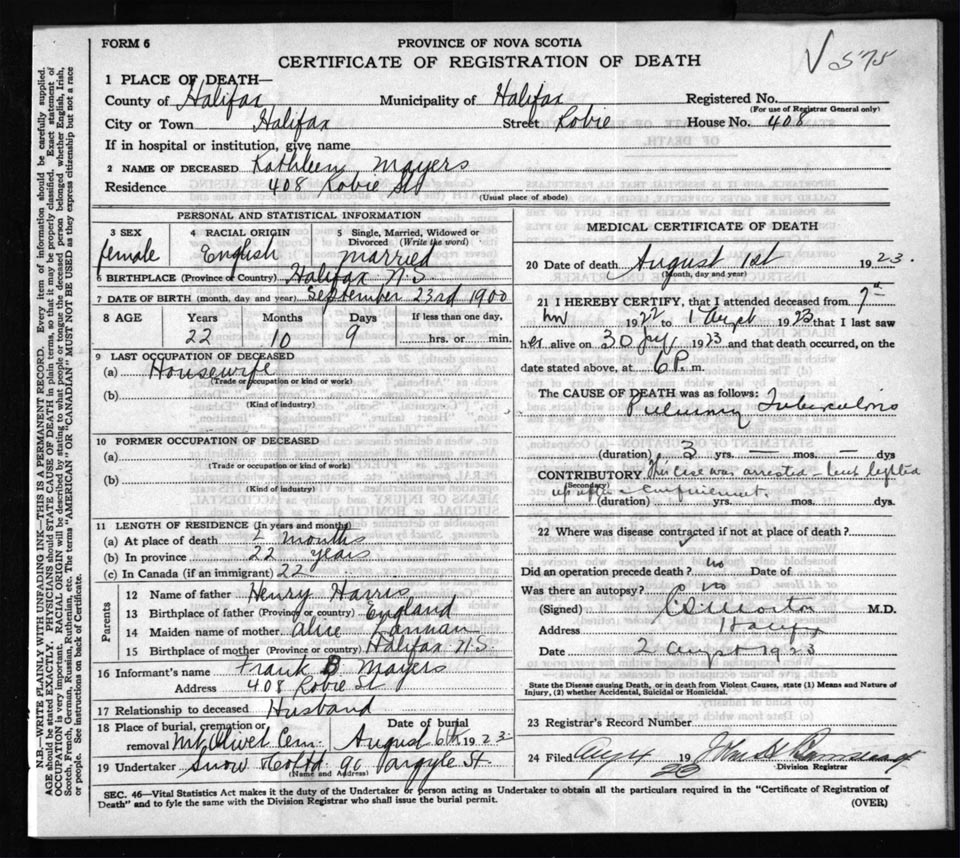 FORM 6
PROVINCE OF NOVA SCOTIA
575
CERTIFICATE OF REGISTRATION OF DEATH
1 PLACE OF DEATH—
County of Halifax Municipality of Halifax Registered No.
(For use of Registrar General only)
City or Town Halifax Street Robie House No. 408
If in hospital or institution, give name
2 NAME OF DECEASED Kathleen Mayers
Residence 408 Robie St
(Usual place of abode)
PERSONAL AND STATISTICAL INFORMATION
3 SEX 4 RACIAL ORIGIN 5 Single, Married, Widowed or Divorced (Write the word)
female English married
6 BIRTHPLACE (Province or Country) Halifax N.S.
7 DATE OF BIRTH (month, day and year) September 23rd 1900
8 AGE Years Months Days If less than one day,
22 10 9 hrs. or min.
9 LAST OCCUPATION OF DECEASED
(a) Housewife
(Trade or occupation or kind or work)
(b)
(Kind of industry)
10 FORMER OCCUPATION OF DECEASED
(a)
(Trade or occupation or kind of work)
(b)
(Kind of industry)
11 LENGTH OF RESIDENCE (In years and months)
(a) At place of death 2 months
(b) In province 22 years
(c) In Canada (if an immigrant) 22
Parents
12 Name of father Henry Harris
13 Birthplace of father (Province or country) England
14 Maiden name of mother Alice
15 Birthplace of mother (Province or country) Halifax N.S.
16 Informant's name Frank B Mayers
Address 408 Robie St
17 Relationship to deceased Husband
18 Place of burial, cremation or removal Mt. Olivet Cem. Date of burial August 6th 1923
19 Undertaker Snow & Co Ltd 90 Argyle St.
(Name and Address)
MEDICAL CERTIFICATE OF DEATH
20 Date of death August 1st 1923.
(Month, day and year)
21 I HEREBY CERTIFY, that I attended deceased from 7th
Nov 1922 to 1 August 1923 that I last saw
her alive on 30 July 1923 and that death occurred, on the
date stated above, at 6 P. m.
The CAUSE OF DEATH was as follows:
Pulmonary Tuberculosis
(duration) 3 yrs. — mos. — dys
CONTRIBUTORY This case was arrested - but lighted
(Secondary) up after confinement.
(duration) yrs. mos. dys.
22 Where was disease contracted if not at place of death?
Did an operation precede death? no Date of
Was there an autopsy? no
(Signed) M.D.
Address Halifax
Date 2 August 1923
State the Disease causing Death, or in death from Violent Causes, state (1) Means and Nature of
Injury, (2) whether Accidental, Suicidal or Homicidal.
23 Registrar's Record Number
24 Filed Aug 4 19
Division Registrar
SEC. 46—Vital Statistics Act makes it the duty of the Undertaker or person acting as Undertaker to obtain all the particulars required in the "Certificate of Registration of
Death" and to fyle the same with the Division Registrar who shall issue the burial permit.
(OVER)
N.B.—WRITE PLAINLY WITH UNFADING INK—THIS IS A PERMANENT RECORD. Every item of information should be carefully supplied.
AGE should be stated EXACTLY. PHYSICIANS should STATE CAUSE OF DEATH in plain terms, so that it may be properly classified. Exact statement of
OCCUPATION is very important. RACIAL ORIGIN will be described by stating to what people or tongue the deceased person belonged, whether English, Irish,
Scotch, French, German, Russian, Ruthenian, etc. The terms "AMERICAN" OR "CANADIAN" MUST NOT BE USED as they express citizenship but not a race
or people. See instructions on back of Certificate.